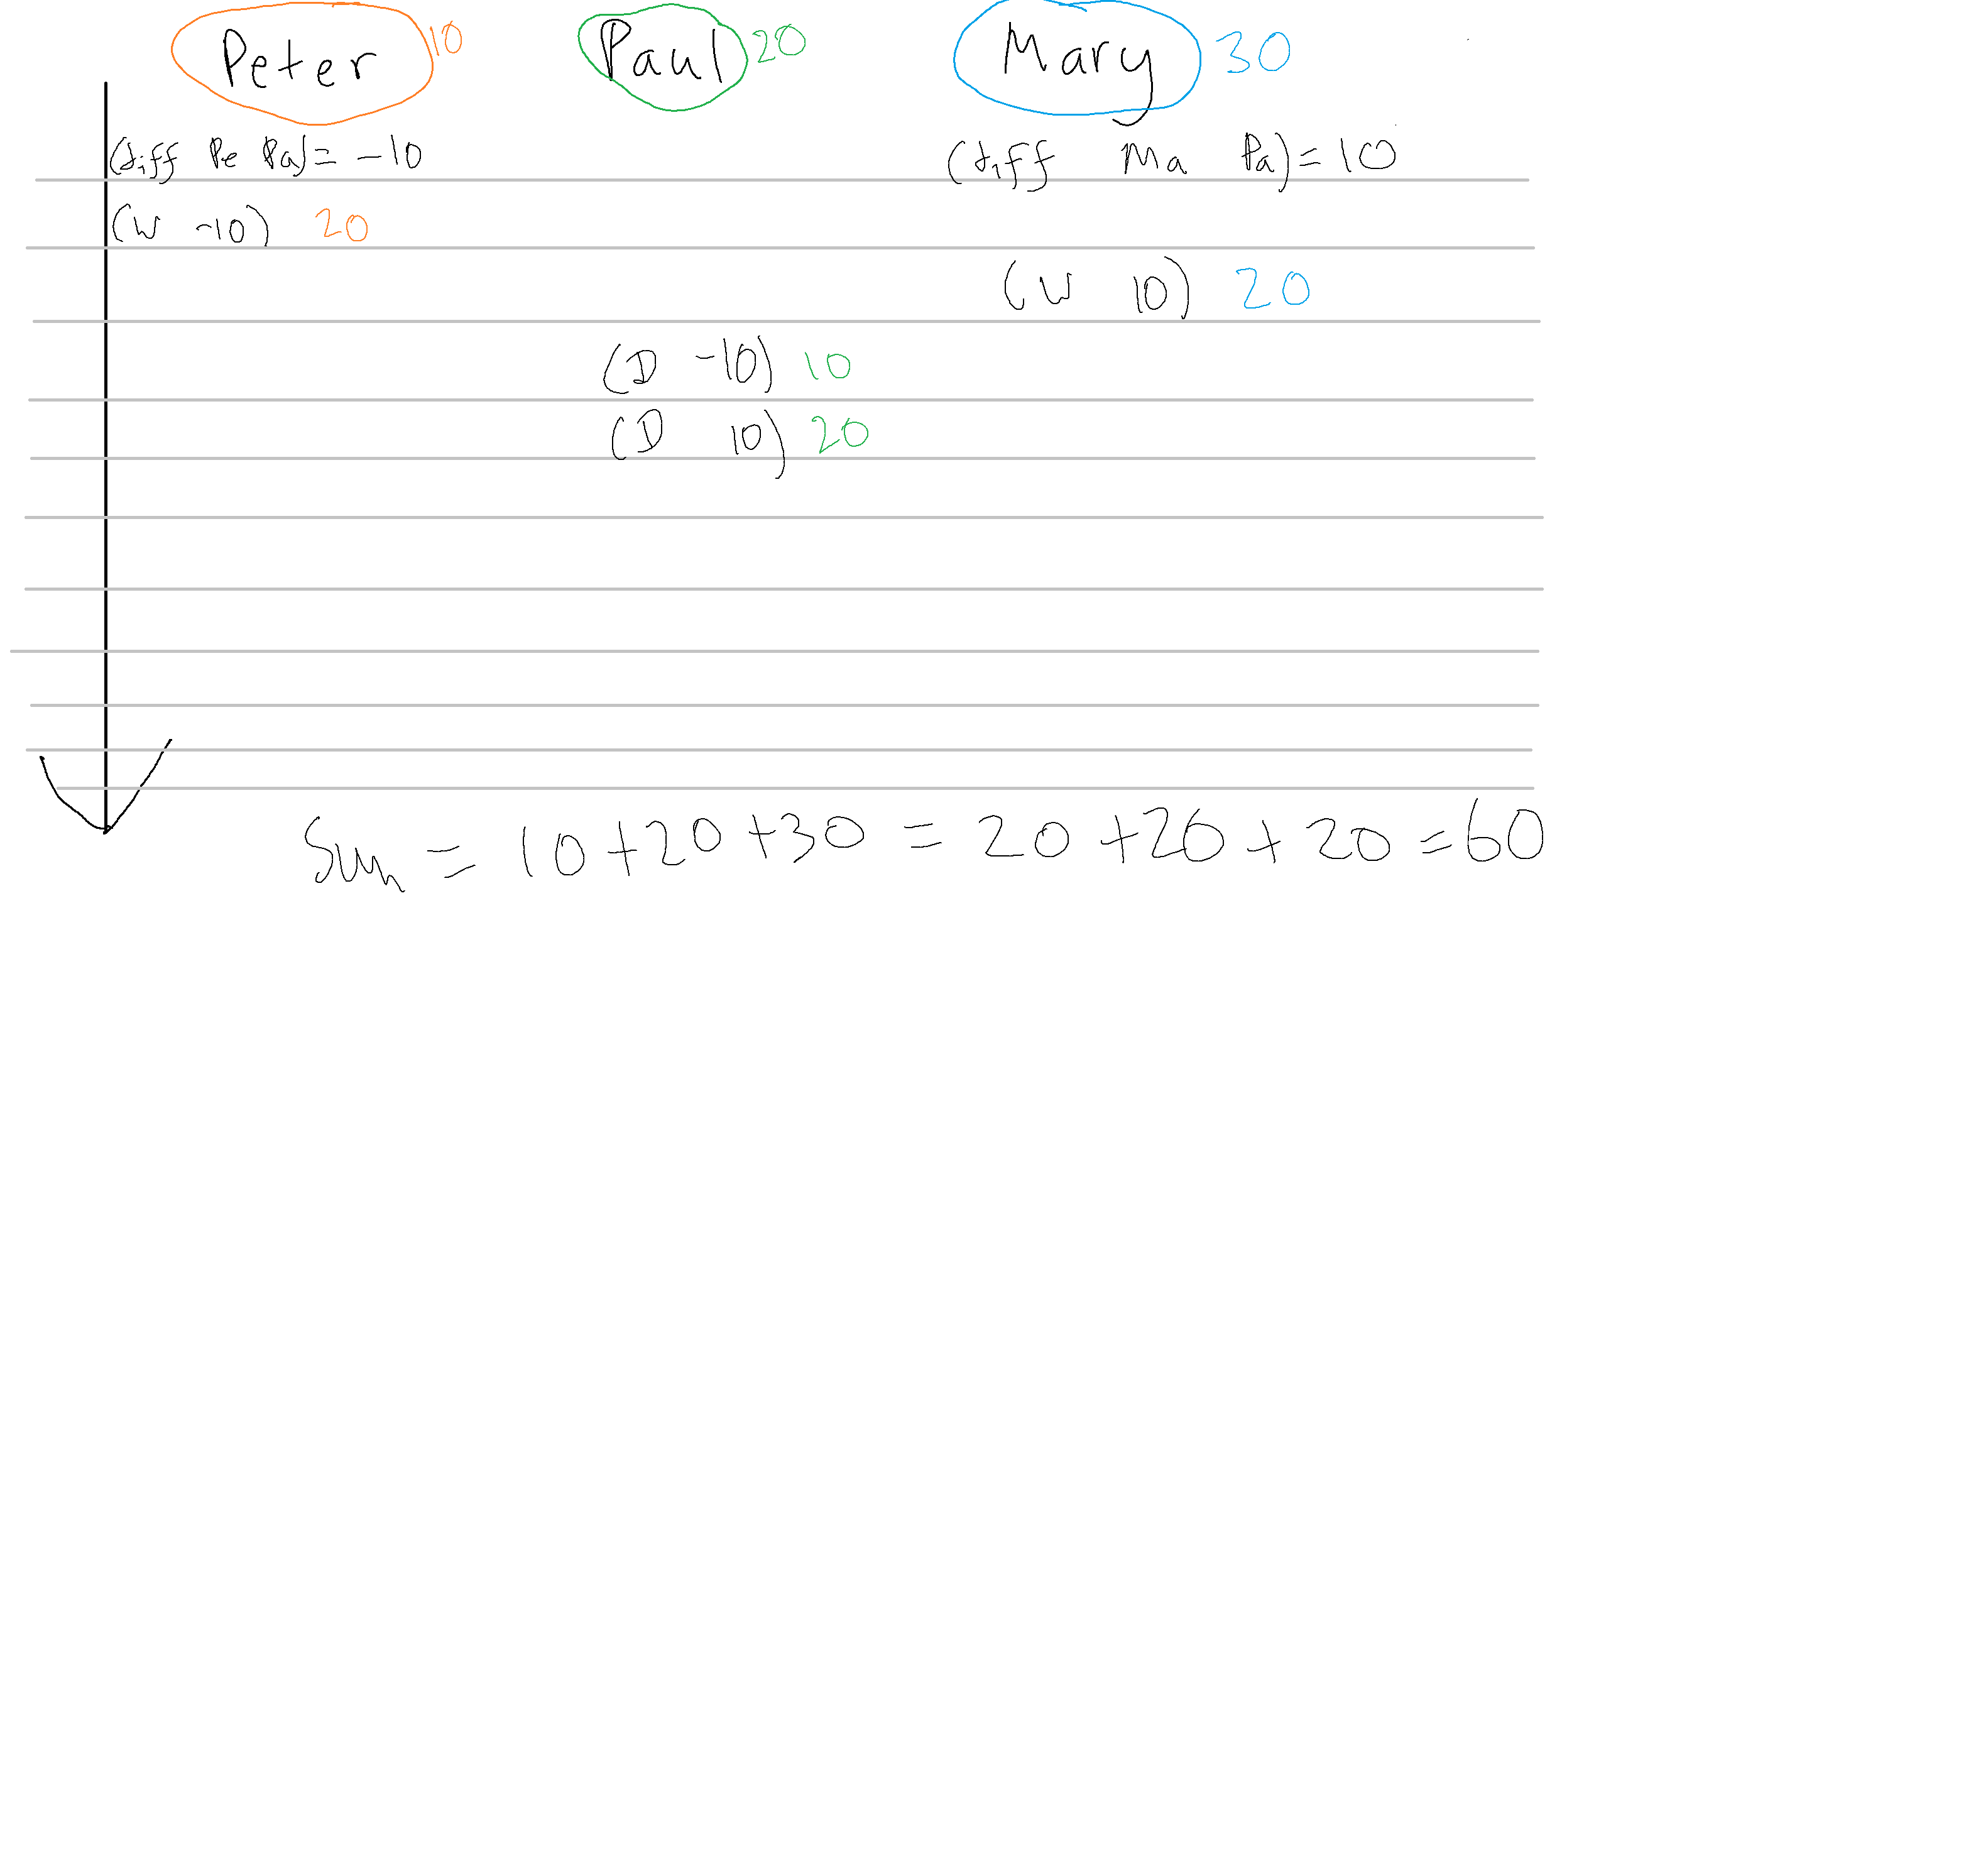 Peter 10 Paul 20 Mary 30
(diff Pe Pa) = -10 (diff Ma Pa) = 10
(W -10) 20
(W 10) 20
(D -10) 10
(D 10) 20
Sum = 10+20+30 = 20+20+20 = 60